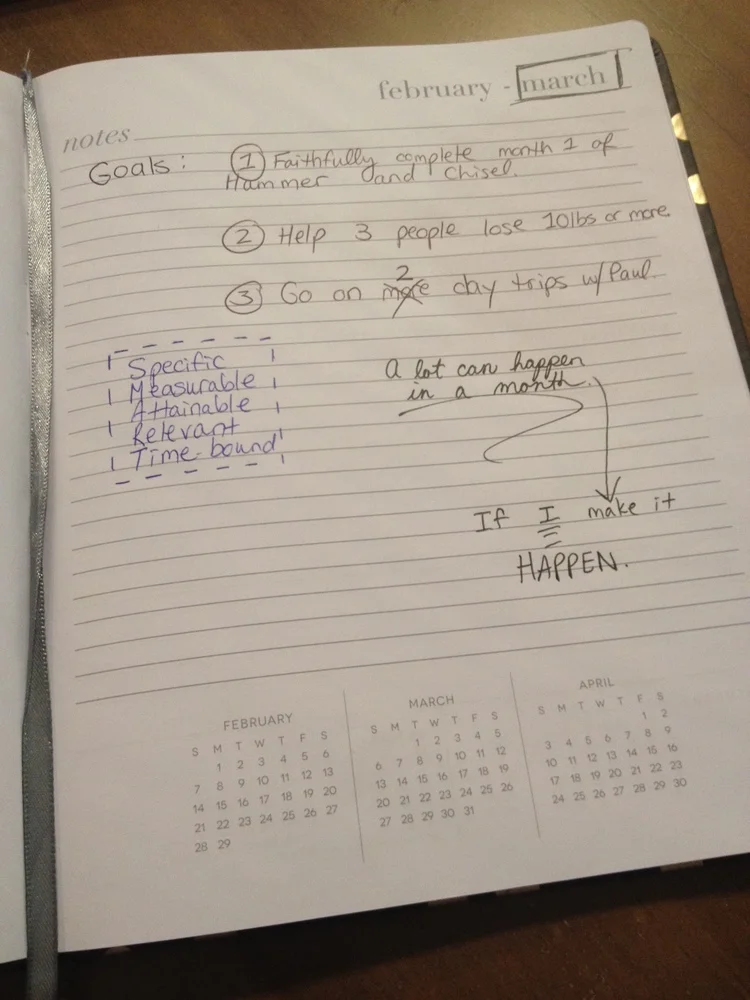 february - march
notes
Goals: ① Faithfully complete month 1 of
Hammer and Chisel.
② Help 3 people lose 10lbs or more.
2
③ Go on more day trips w/Paul
Specific
Measurable
Attainable
Relevant
Time-bound
A lot can happen
in a month.
If I make it
HAPPEN.
FEBRUARY
S M T W T F S
1 2 3 4 5 6
7 8 9 10 11 12 13
14 15 16 17 18 19 20
21 22 23 24 25 26 27
28 29
MARCH
S M T W T F S
1 2 3 4 5
6 7 8 9 10 11 12
13 14 15 16 17 18 19
20 21 22 23 24 25 26
27 28 29 30 31
APRIL
S M T W T F S
1 2
3 4 5 6 7 8 9
10 11 12 13 14 15 16
17 18 19 20 21 22 23
24 25 26 27 28 29 30